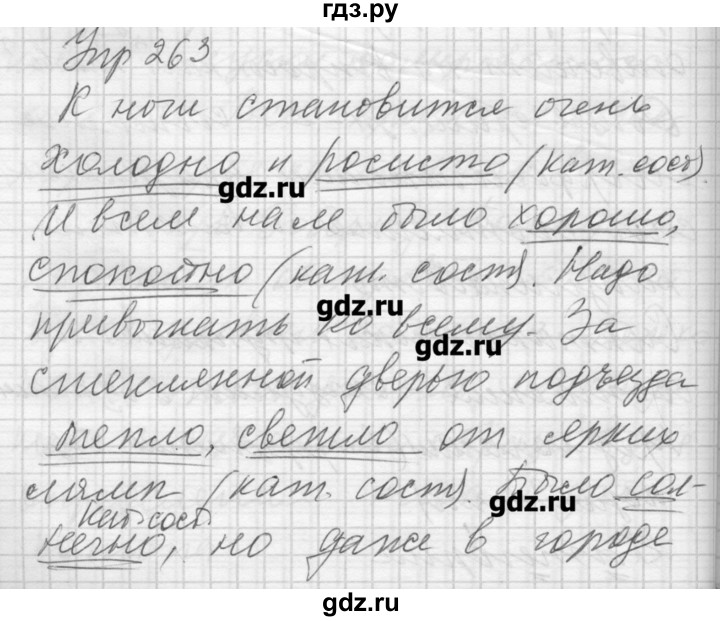 гдз.ру
Упр 263
К ночи становится очень
холодно и росисто (кат. сост).
И всем нам было хорошо,
спокойно (кат. сост). Надо
привыкать ко всему. За
стеклянной дверью подъезда
тепло, светло от ярких
ламп (кат. сост). Было сол-
кат сост.
нечно, но даже в городе
gdz.ru
gdz.ru
gdz.ru
gdz.ru
gdz.ru